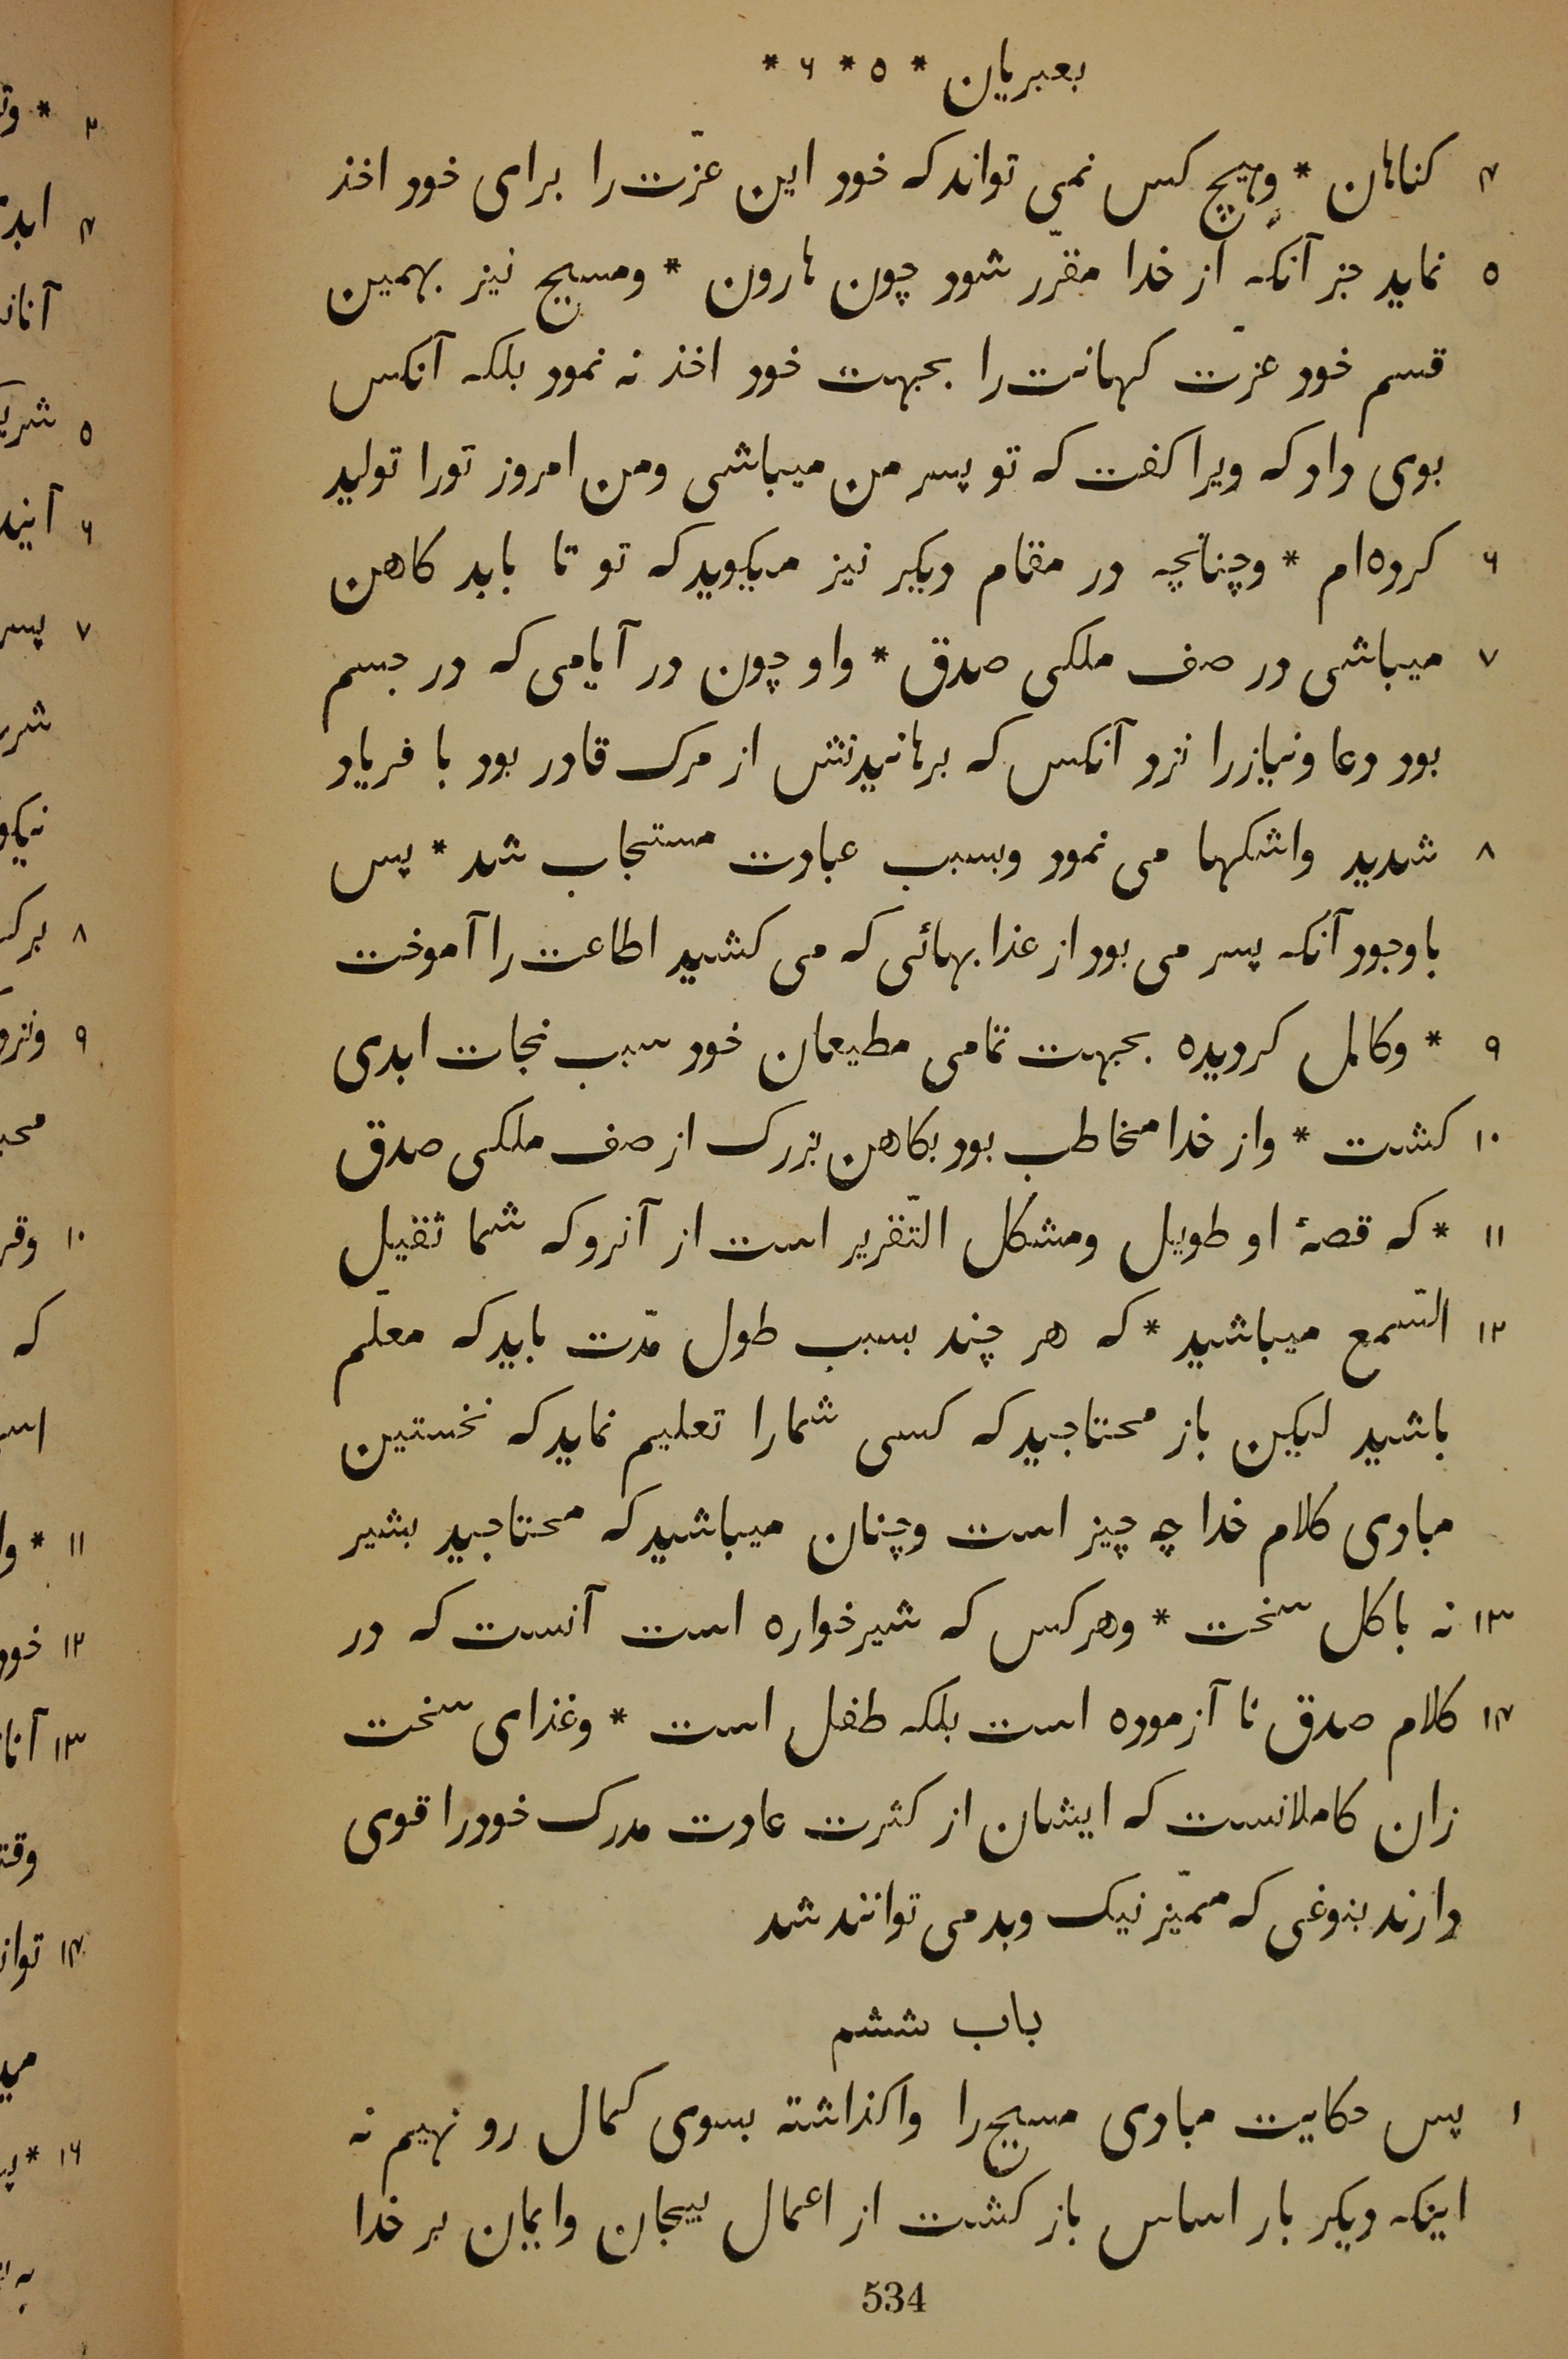 بعبریان * ٥ * ٦ *
٤ کناهان * وهیچ کس نمی تواند که خود این عزّت را برای خود اخذ
٥ نماید جز آنکه از خدا مقرّر شود چون هارون * ومسیح نیز بهمین
قسم خود عزّت کهانت را بجهت خود اخذ نه نمود بلکه آنکس
بوی داد که ویرا کفت که تو پسر من میباشی ومن امروز تورا تولید
٦ کرده‌ام * وچنانچه در مقام دیکر نیز میکوید که تو تا بابد کاهن
٧ میباشی در صف ملکی صدق * واو چون در آیامی که در جسم
بود دعا ونیازرا نزد آنکس که برهانیدنش از مرک قادر بود با فریاد
٨ شدید واشکها می نمود وبسبب عبادت مستجاب شد * پس
باوجود آنکه پسر می بود از عذابهائی که می کشید اطاعت را آموخت
٩ * وکامل کردیده بجهت تمامی مطیعان خود سبب نجات ابدی
١٠ کشت * واز خدا مخاطب بود بکاهن بزرک از صف ملکی صدق
١١ * که قصهٔ او طویل ومشکل التّقریر است از آنرو که شما ثقیل
١٢ السّمع میباشید * که هر چند بسبب طول مدّت باید که معلّم
باشید لیکن باز محتاجید که کسی شمارا تعلیم نماید که نخستین
مبادی کلام خدا چه چیز است وچنان میباشید که محتاجید بشیر
١٣ نه باکل سخت * وهرکس که شیرخواره است آنست که در
١٤ کلام صدق نا آزموده است بلکه طفل است * وغذای سخت
زان کاملانست که ایشان از کثرت عادت مدرک خودرا قوی
دارند بنوعی که ممیّز نیک وبد می توانند شد
باب ششم
١ پس حکایت مبادی مسیح را واکذاشته بسوی کمال رو نهیم نه
اینکه دیکر بار اساس باز کشت از اعمال بیجان وایمان بر خدا
534